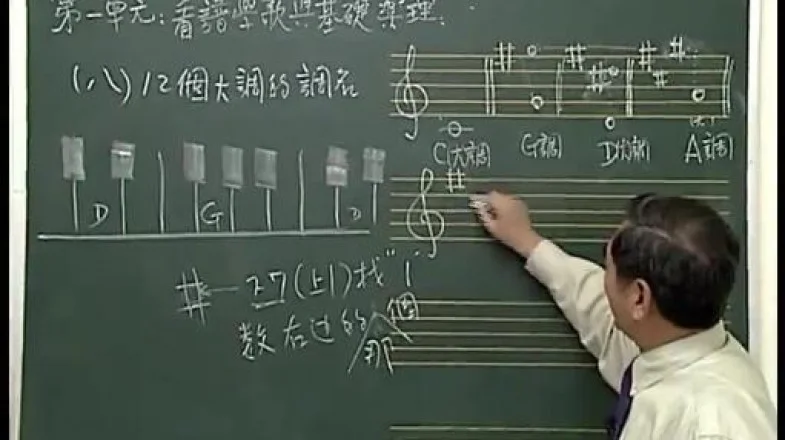 第一單元:看譜學歌與基礎樂理:
(八)12個大調的調名
C(大調) G調 D大調 A調
D G D
#一ㄋ7(上1)找"1"
数右边的那個